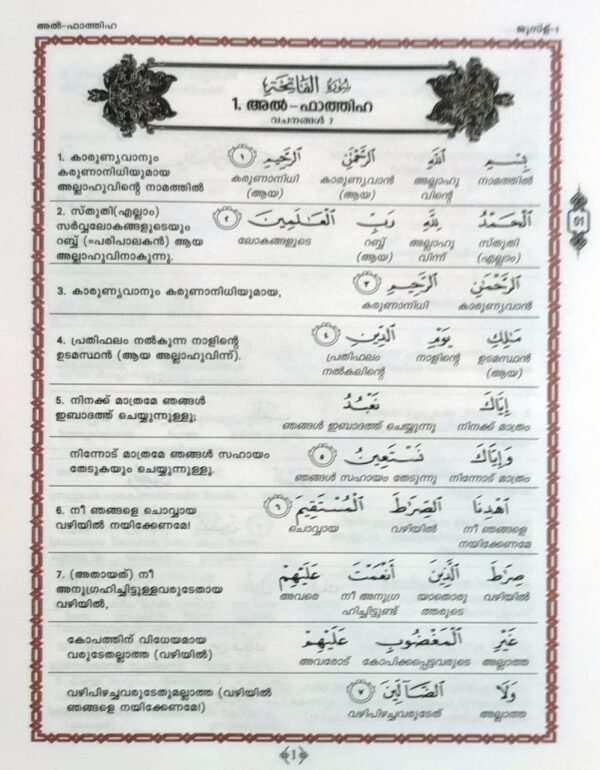 അൽ-ഫാത്തിഹ
ജുസ്ഉ്-1
سُورَةُ الْفَاتِحَةِ
1. അൽ-ഫാത്തിഹ
വചനങ്ങൾ 7
1. കാരുണ്യവാനും
കരുണാനിധിയുമായ
അല്ലാഹുവിന്റെ നാമത്തിൽ
بِسْمِ اللَّهِ الرَّحْمَٰنِ الرَّحِيمِ ١
കരുണാനിധി കാരുണ്യവാൻ അല്ലാഹു നാമത്തിൽ
(ആയ) (ആയ) വിന്റെ
2. സ്തുതി(എല്ലാം)
സർവ്വലോകങ്ങളുടെയും
റബ്ബ് (=പരിപാലകൻ) ആയ
അല്ലാഹുവിനാകുന്നു.
الْحَمْدُ لِلَّهِ رَبِّ الْعَالَمِينَ ٢
ലോകങ്ങളുടെ റബ്ബ് അല്ലാഹു സ്തുതി
(ആയ) വിന്ന് (എല്ലാം)
3. കാരുണ്യവാനും കരുണാനിധിയുമായ,
الرَّحْمَٰنِ الرَّحِيمِ ٣
കരുണാനിധി കാരുണ്യവാൻ
4. പ്രതിഫലം നൽകുന്ന നാളിന്റെ
ഉടമസ്ഥൻ (ആയ അല്ലാഹുവിന്ന്).
مَٰلِكِ يَوْمِ الدِّينِ ٤
പ്രതിഫലം നാളിന്റെ ഉടമസ്ഥൻ
നൽകലിന്റെ (ആയ)
5. നിനക്ക് മാത്രമേ ഞങ്ങൾ
ഇബാദത്ത് ചെയ്യുന്നുള്ളൂ;
إِيَّاكَ نَعْبُدُ
ഞങ്ങൾ ഇബാദത്ത് ചെയ്യുന്നു നിനക്ക് മാത്രം
നിന്നോട് മാത്രമേ ഞങ്ങൾ സഹായം
തേടുകയും ചെയ്യുന്നുള്ളൂ.
وَإِيَّاكَ نَسْتَعِينُ ٥
ഞങ്ങൾ സഹായം തേടുന്നു നിന്നോട് മാത്രം
6. നീ ഞങ്ങളെ ചൊവ്വായ
വഴിയിൽ നയിക്കേണമേ!
اهْدِنَا الصِّرَٰطَ الْمُسْتَقِيمَ ٦
ചൊവ്വായ വഴിയിൽ നീ ഞങ്ങളെ
നയിക്കേണമേ
7. (അതായത്) നീ
അനുഗ്രഹിച്ചിട്ടുള്ളവരുടേതായ
വഴിയിൽ,
صِرَٰطَ الَّذِينَ أَنْعَمْتَ عَلَيْهِمْ
അവരെ നീ അനുഗ്ര യാതൊരു വഴിയിൽ
ഹിച്ചിട്ടുണ്ട് ത്തരുടെ
കോപത്തിന് വിധേയമായ
വരുടേതല്ലാത്ത (വഴിയിൽ)
غَيْرِ الْمَغْضُوبِ عَلَيْهِمْ
അവരോട് കോപിക്കപ്പെട്ടവരുടെ അല്ലാത്ത
വഴിപിഴച്ചവരുടേതുമല്ലാത്ത (വഴിയിൽ
ഞങ്ങളെ നയിക്കേണമേ!)
وَلَا الضَّآلِّينَ ٧
വഴിപിഴച്ചവരുടേത് അല്ലാത്ത
01
1